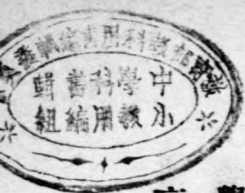 教育部教科用書編輯委員會
中小
學教
科用
書編
輯組